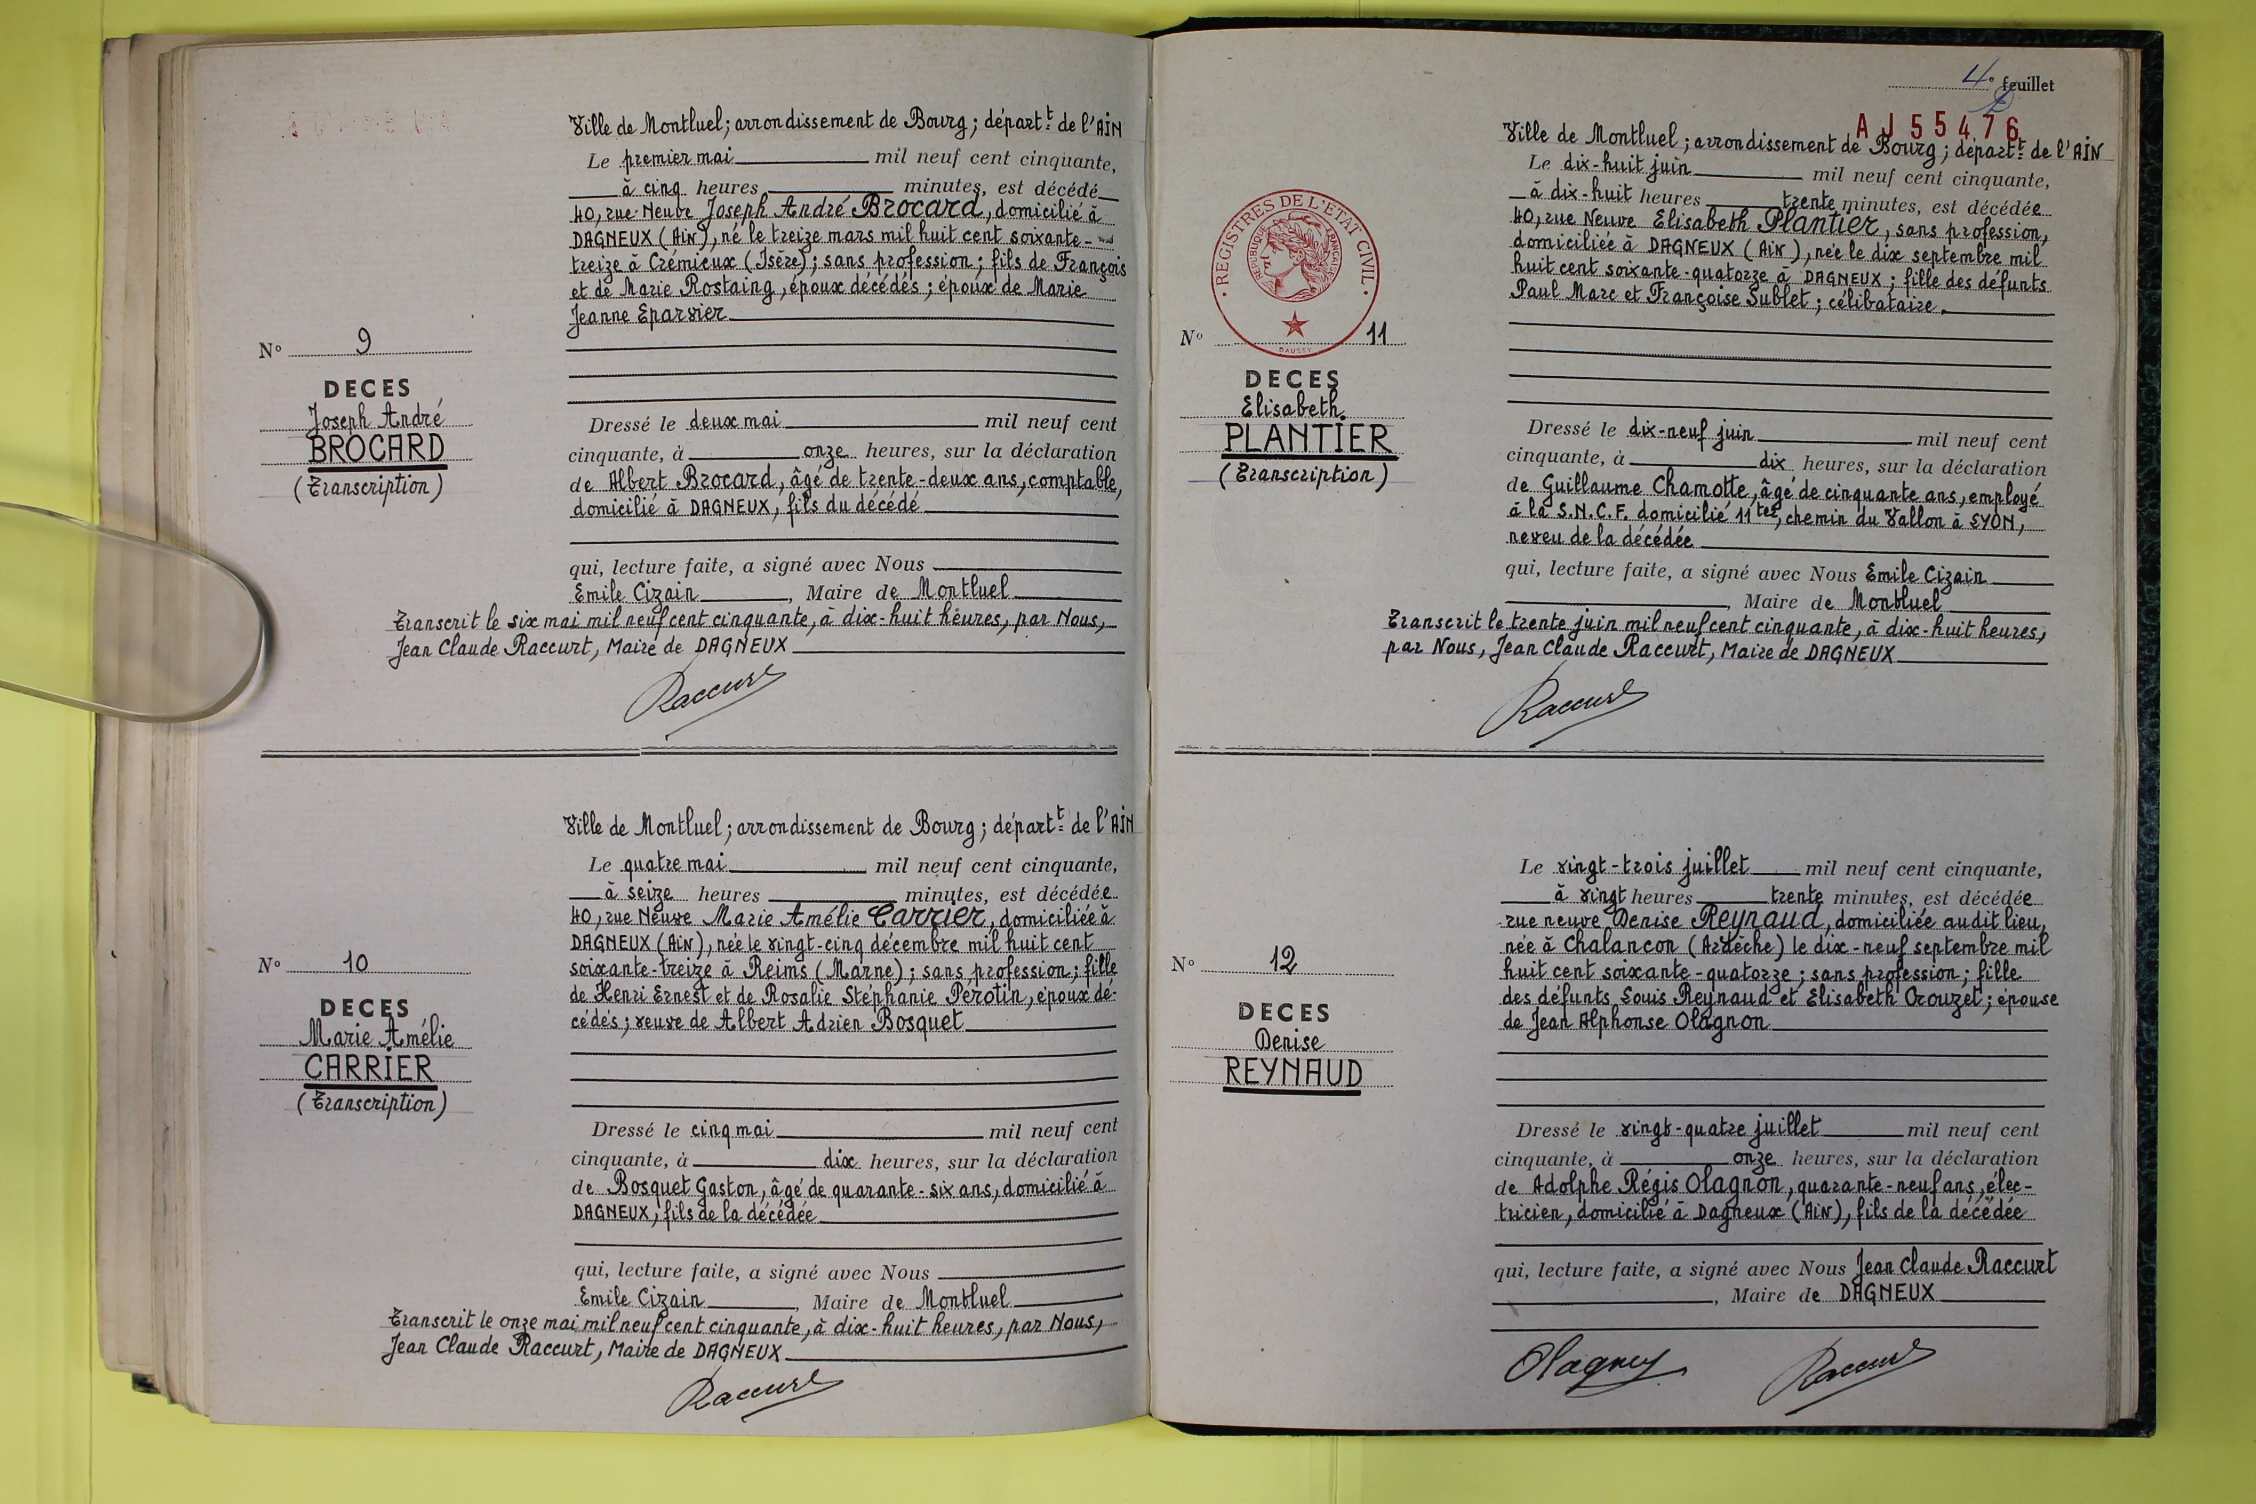 Ville de Montluel; arrondissement de Bourg; départt. de l'AiN
Le premier mai mil neuf cent cinquante,
à cinq heures minutes, est décédé
40, rue Neuve Joseph André Brocard, domicilié à
DAGNEUX (AiN), né le treize mars mil huit cent soixante-
treize à Crémieux (Isère); sans profession; fils de François
et de Marie Rostaing, époux décédés; époux de Marie
Jeanne Eparvier
N° 9
DECES
Joseph André
BROCARD
(Transcription)
Dressé le deux mai mil neuf cent
cinquante, à onze heures, sur la déclaration
de Albert Brocard, âgé de trente-deux ans, comptable,
domicilié à DAGNEUX, fils du décédé
qui, lecture faite, a signé avec Nous
Emile Cizain, Maire de Montluel
Transcrit le six mai mil neuf cent cinquante, à dix-huit heures, par Nous,
Jean Claude Raccurt, Maire de DAGNEUX
Raccurt
Ville de Montluel; arrondissement de Bourg; départt. de l'AiN
Le quatre mai mil neuf cent cinquante,
à seize heures minutes, est décédée
40, rue Neuve Marie Amélie Carrier, domiciliée à
DAGNEUX (AiN), née le vingt-cinq décembre mil huit cent
soixante-treize à Reims (Marne); sans profession; fille
de Henri Ernest et de Rosalie Stéphanie Perotin, époux dé-
cédés; veuve de Albert Adrien Bosquet
N° 10
DECES
Marie Amélie
CARRIER
(Transcription)
Dressé le cinq mai mil neuf cent
cinquante, à dix heures, sur la déclaration
de Bosquet Gaston, âgé de quarante-six ans, domicilié à
DAGNEUX, fils de la décédée
qui, lecture faite, a signé avec Nous
Emile Cizain, Maire de Montluel
Transcrit le onze mai mil neuf cent cinquante, à dix-huit heures, par Nous,
Jean Claude Raccurt, Maire de DAGNEUX
Raccurt
4e feuillet
AJ55476
Ville de Montluel; arrondissement de Bourg; départt. de l'AiN
Le dix-huit juin mil neuf cent cinquante,
à dix-huit heures trente minutes, est décédée
40, rue Neuve Elisabeth Plantier, sans profession,
domiciliée à DAGNEUX (AiN), née le dix septembre mil
huit cent soixante-quatorze à DAGNEUX; fille des défunts
Paul Marc et Françoise Sublet; célibataire.
REGISTRES DE L'ETAT CIVIL
REPUBLIQUE FRANÇAISE
DAUSSY
N° 11
DECES
Elisabeth
PLANTIER
(Transcription)
Dressé le dix-neuf juin mil neuf cent
cinquante, à dix heures, sur la déclaration
de Guillaume Chamotte, âgé de cinquante ans, employé
à la S.N.C.F. domicilié 11 ter, chemin du Vallon à LYON,
neveu de la décédée
qui, lecture faite, a signé avec Nous Emile Cizain
, Maire de Montluel
Transcrit le trente juin mil neuf cent cinquante, à dix-huit heures,
par Nous, Jean Claude Raccurt, Maire de DAGNEUX
Raccurt
Le vingt-trois juillet mil neuf cent cinquante,
à vingt heures trente minutes, est décédée
rue neuve Denise Reynaud, domiciliée audit lieu,
née à Chalancon (Ardèche) le dix-neuf septembre mil
huit cent soixante-quatorze; sans profession; fille
des défunts Louis Reynaud et Elisabeth Crouzet; épouse
de Jean Alphonse Olagnon
N° 12
DECES
Denise
REYNAUD
Dressé le vingt-quatre juillet mil neuf cent
cinquante, à onze heures, sur la déclaration
de Adolphe Régis Olagnon, quarante-neuf ans, élec-
tricien, domicilié à Dagneux (AiN), fils de la décédée
qui, lecture faite, a signé avec Nous Jean Claude Raccurt
, Maire de DAGNEUX
Olagnon Raccurt